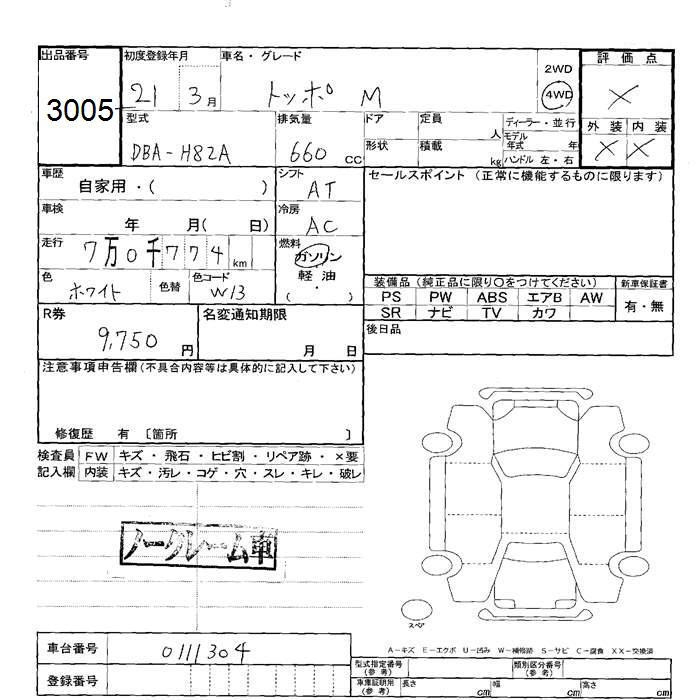 出品番号 初度登録年月 車名・グレード 評価点
3005 21 3月 トッポ M 2WD 4WD ×
型式 排気量 ドア 定員 ディーラー・並行 外装 内装
DBA-H82A 660 CC 人 モデル年式 年 × ×
形状 積載 kg ハンドル 左・右
車歴 シフト セールスポイント (正常に機能するものに限ります)
自家用・( ) AT
車検 冷房
年 月( 日) AC
走行 燃料
7万0千774km ガソリン
軽油
・
( )
色 色替 色コード
ホワイト W13
装備品 (純正品に限り○をつけてください) 新車保証書
PS PW ABS エアB AW 有・無
SR ナビ TV カワ
R券 名変通知期限 後日品
9,750 円 月 日
注意事項申告欄(不具合内容等は具体的に記入して下さい)
修復歴 有 〔箇所 〕
検査員 FW キズ・飛石・ヒビ割・リペア跡・×要
記入欄 内装 キズ・汚レ・コゲ・穴・スレ・キレ・破レ
ノークレーム車
スペア
A-キズ E-エクボ U-凹み W-補修跡 S-サビ C-腐食 XX-交換済
車台番号 0111304
登録番号
型式指定番号(参考) 類別区分番号(参考)
車庫証明用(参考) 長さ cm 幅 cm 高さ cm